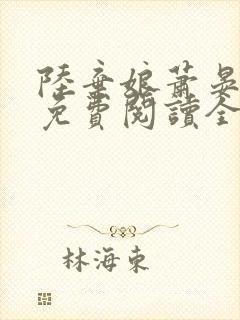 陸棄娘蕭晏
免費閱讀全
林海東